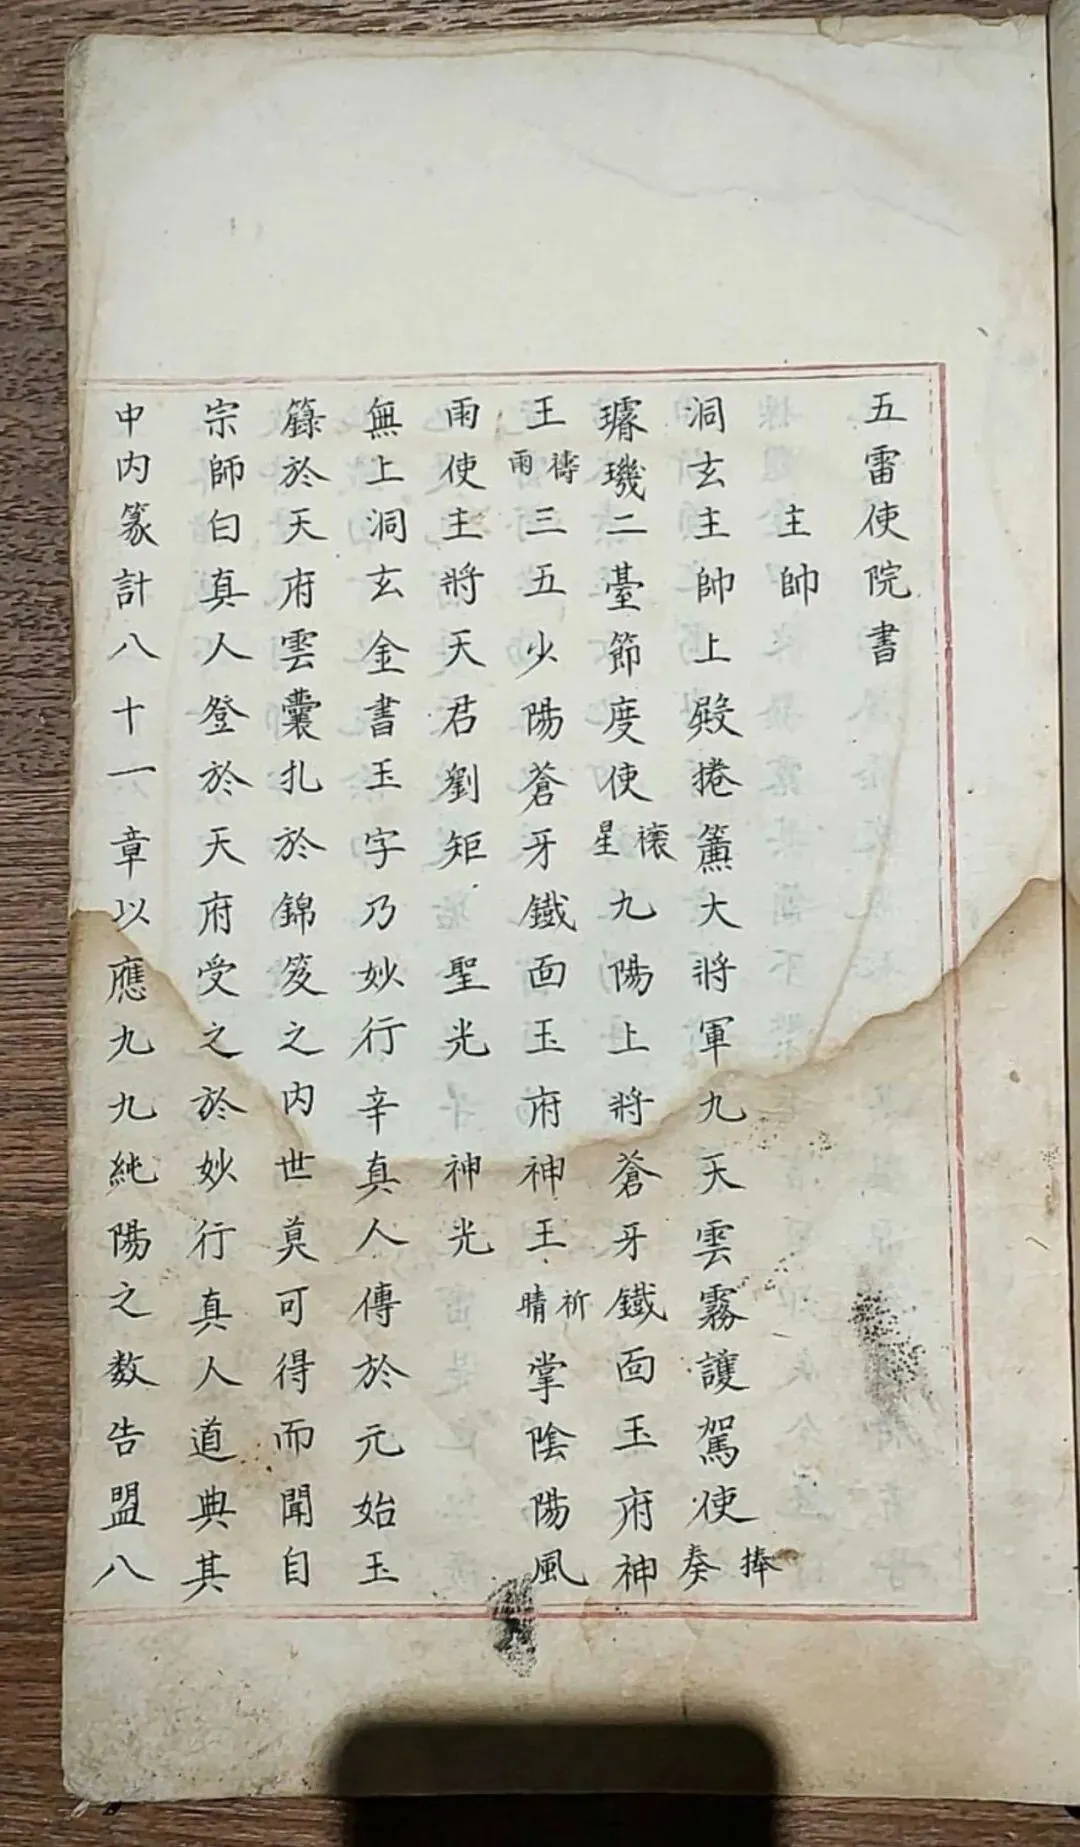 五雷使院書
主帥
洞玄主帥上殿捲簾大將軍九天雲霧護駕使捧奏
璿璣二臺節度使禳星九陽上將蒼牙鐵面玉府神
王禱雨三五少陽蒼牙鐵面玉府神王祈晴掌陰陽風
雨使主將天君劉矩 聖光 神光
無上洞玄金書玉字乃妙行辛真人傳於元始玉
籙於天府雲囊扎於錦笈之內世莫可得而聞自
宗師白真人登於天府受之於妙行真人道典其
中內篆計八十一章以應九九純陽之数告盟八